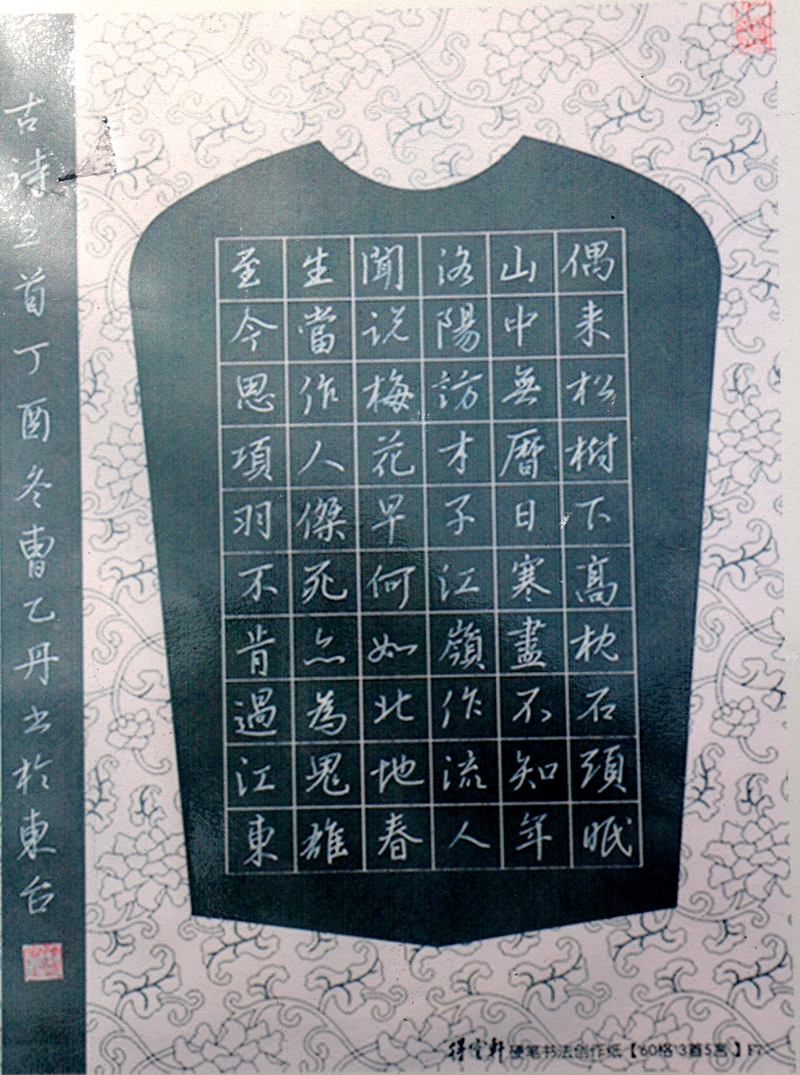 偶来松樹下高枕石頭眠
山中無曆日寒盡不知年
洛陽訪才子江嶺作流人
聞说梅花早何如北地春
生當作人傑死亦為鬼雄
至今思項羽不肯過江東
古诗三首丁酉冬曹乙丹书於東台
得宝轩 硬笔书法创作纸【60格3首5言】F7